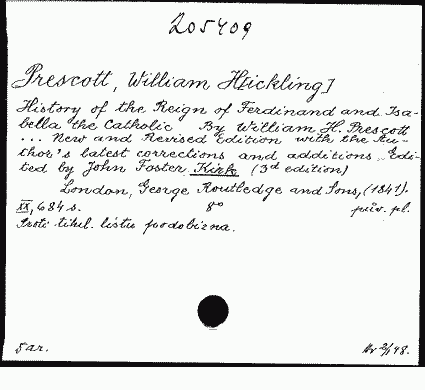 205409
Prescott, William H[ickling]
History of the Reign of Ferdinand and Isa-
bella the Catholic By William H. Prescott
... New and Revised Edition with the Au-
thor's latest corrections and additions. Edi-
ted by John Foster Kirk (3rd edition)
London, George Routledge and Sons, (1841).
XX, 684 s. 8° pův. pl.
Proti titul. listu podobizna.
dar. 2/1 48.